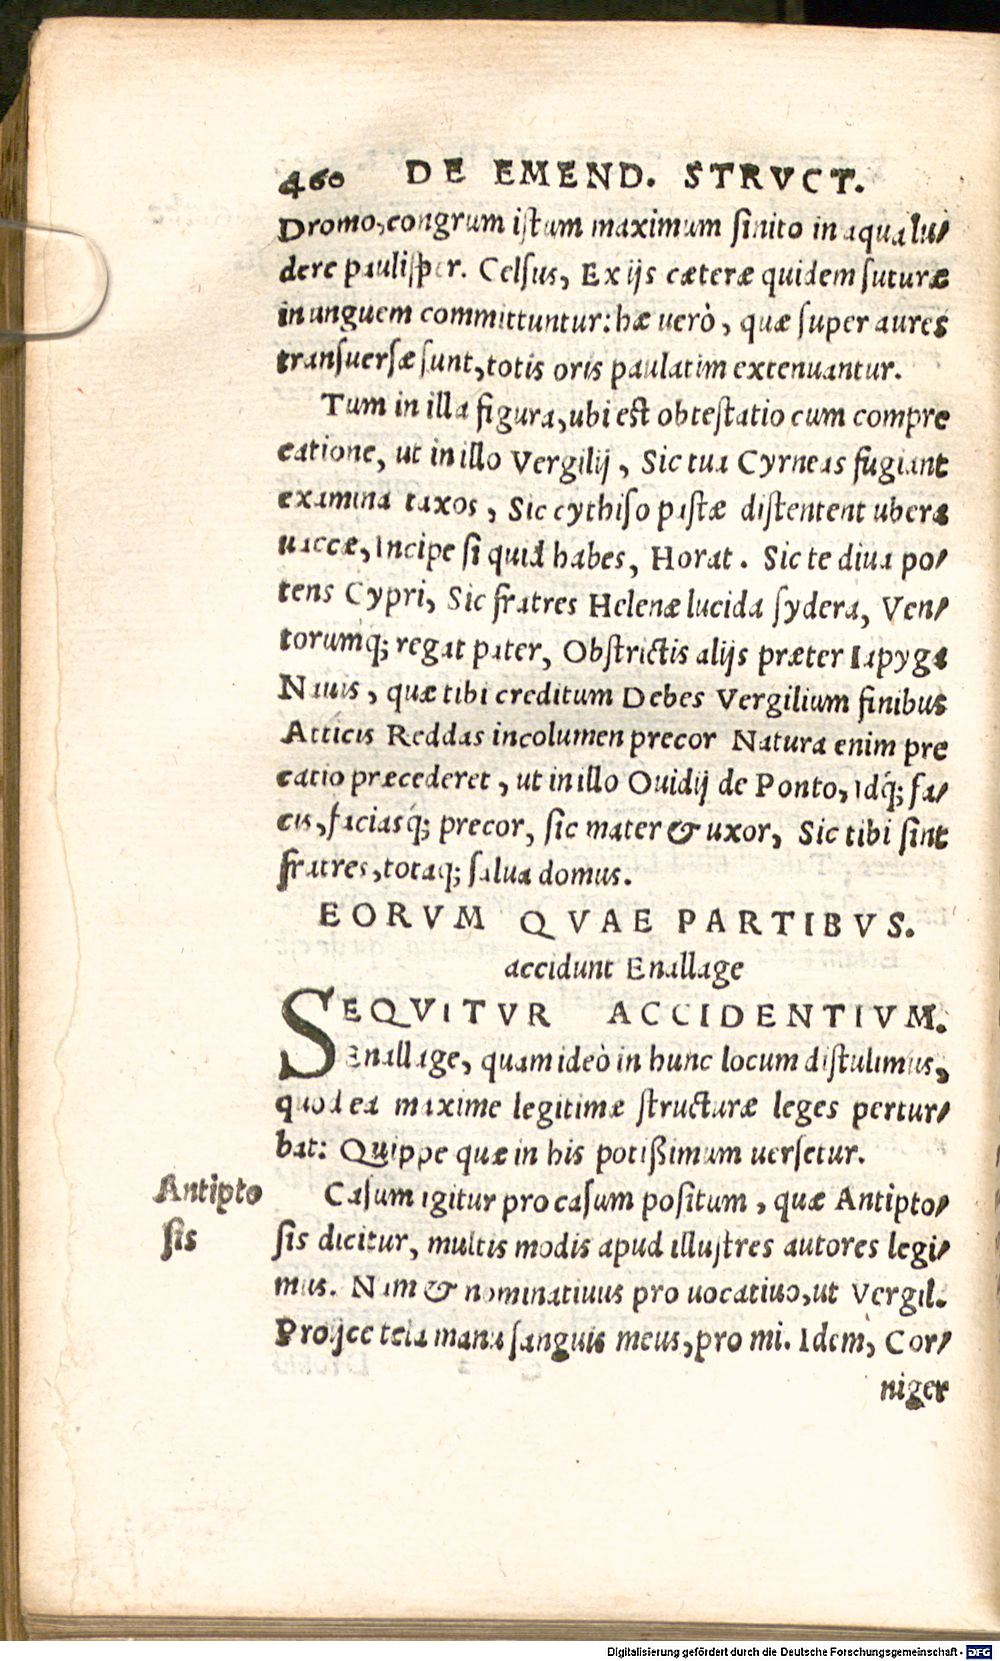 460 DE EMEND. STRVCT.
Dromo, congrum iſtum maximum ſinito in aqua lu-
dere pauliſper. Celſus, Ex ijs cæteræ quidem ſuturæ
in unguem committuntur: hæ uerò, quæ ſuper aures
tranſuerſæ ſunt, totis oris paulatim extenuantur.
Tum in illa figura, ubi eſt obteſtatio cum compre
catione, ut in illo Vergilij, Sic tua Cyrneas fugiant
examina taxos, Sic cythiſo paſtæ diſtentent ubera
uaccæ, Incipe ſi quid habes, Horat. Sic te diua po-
tens Cypri, Sic fratres Helenæ lucida ſydera, Ven-
torumq́; regat pater, Obſtrictis alijs præter Iapyga
Nauis, quæ tibi creditum Debes Vergilium finibus
Atticis Reddas incolumen precor Natura enim pre
catio præcederet, ut in illo Ouidij de Ponto, Idq́; fa-
cis, faciasq́; precor, ſic mater & uxor, Sic tibi ſint
fratres, totaq; ſalua domus.
EORVM QVAE PARTIBVS.
accidunt Enallage
SEQVITVR ACCIDENTIVM.
Enallage, quam ideò in hunc locum diſtulimus,
quod ea maxime legitimæ ſtructuræ leges pertur-
bat: Quippe quæ in his potißimum uerſetur.
Antipto
ſis
Caſum igitur pro caſum poſitum, quæ Antipto-
ſis dicitur, multis modis apud illuſtres autores legi-
mus. Nam & nominatiuus pro uocatiuo, ut Vergil.
Proijce tela manu ſanguis meus, pro mi. Idem, Cor-
niger
Digitalisierung gefördert durch die Deutsche Forschungsgemeinschaft - DFG